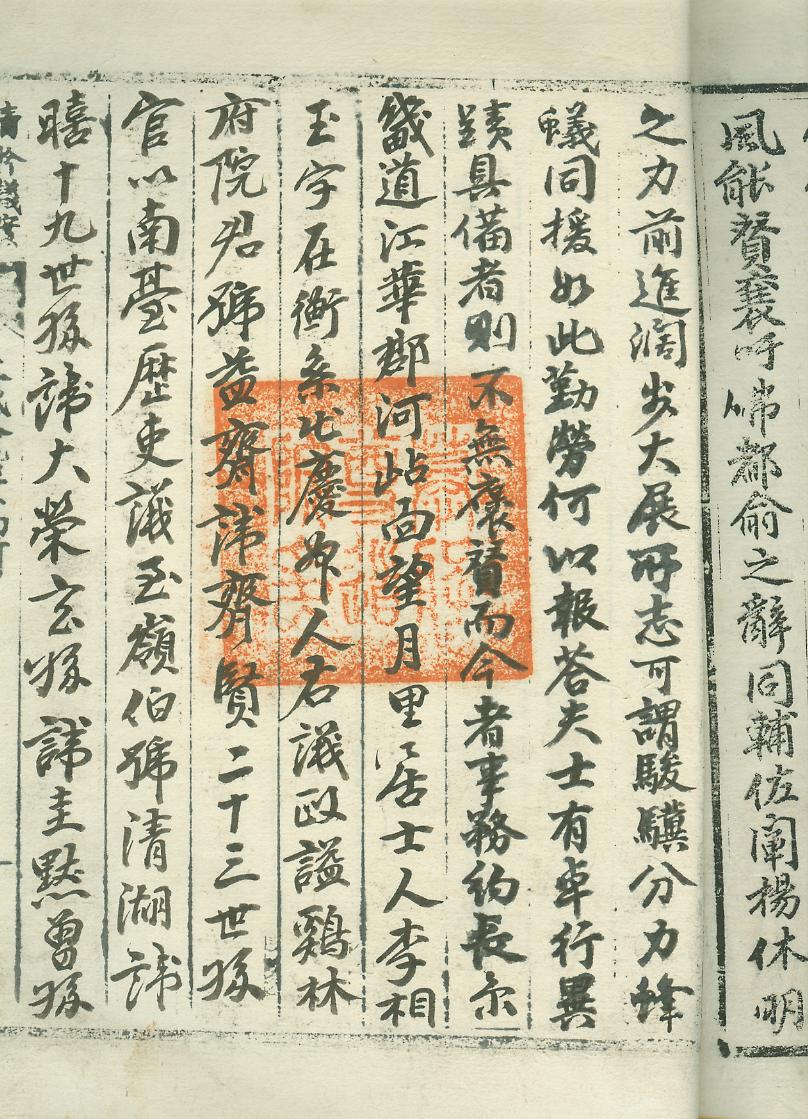 風能賛襄吁咈都俞之辭同輔佐闡揚休明
之力前進濶步大展所志可謂駿驥分力蜂
蟻同援如此勤勞何以報荅夫士有卓行異
蹟具備者則不無褒賛而今者事務約長京
畿道江華郡河岾面望月里居士人李相
玉字在衡系出慶州人右議政謚鷄林
府院君號益齋諱齊賢二十三世孫
官以南臺歷吏議至嶺伯號清湖諱
暿十九世孫諱大榮玄孫諱圭黙曾孫